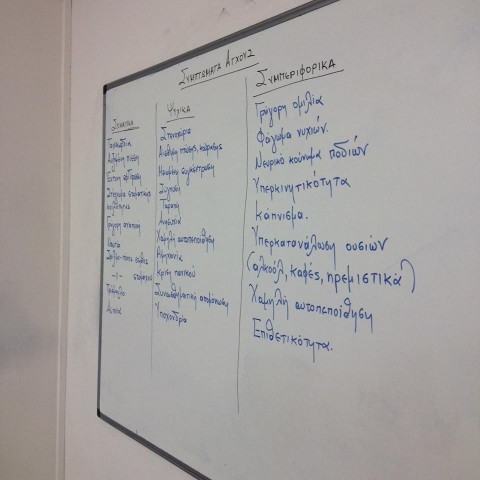 Συμπτώματα Άγχους
Σωματικά
Ταχυκαρδία
Αυξημένη πίεση
Έντονη εφίδρωση
Γρήγορη αναπνοή
Ναυτία
Τρέμουλο
Αϋπνία
Ψυχικά
Στενοχώρια
Αίσθηση πίεσης, κούρασης
Μειωμένη συγκέντρωση
Σύγχυση
Ταραχή
Ανησυχία
Χαμηλή αυτοπεποίθηση
Αμηχανία
Κρίση πανικού
Συναισθηματική απομόνωση
Υποχονδρία
Συμπεριφορικά
Γρήγορη ομιλία
Φάγωμα νυχιών.
Νευρικό κούνημα ποδιών
Υπερκινητικότητα
Κάπνισμα.
Υπερκατανάλωση ουσιών
(αλκοόλ, καφές, ηρεμιστικά)
Χαμηλή αυτοπεποίθηση
Επιθετικότητα.